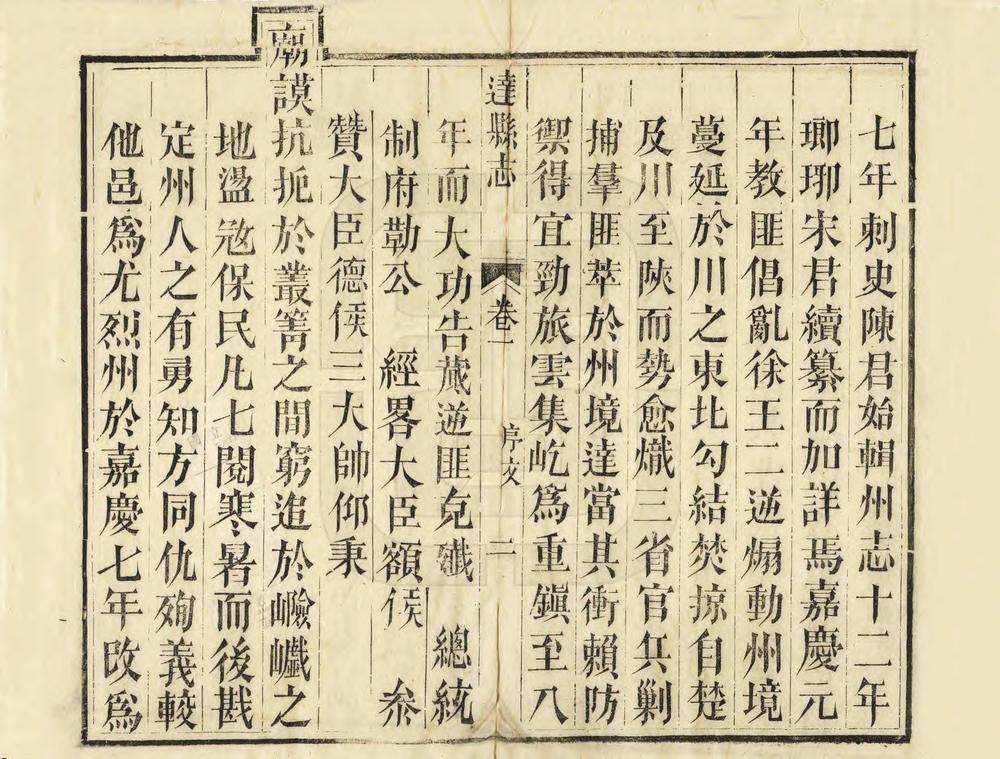 七年刺史陳君始輯州志十二年
瑯琊宋君續纂而加詳焉嘉慶元
年教匪倡亂徐王二逆煽動州境
蔓延於川之東北勾結焚掠自楚
及川至陝而勢愈熾三省官兵剿
捕羣匪萃於州境達當其衝賴防
禦得宜勁旅雲集屹爲重鎭至八
達縣志 卷一 序文 二
年而大功告蕆逆匪克殲 總統
制府勒公 經畧大臣額侯 參
贊大臣德侯三大帥仰秉
廟謨抗扼於叢箐之間窮追於嶮巇之
地盪寇保民凡七閱寒暑而後戡
定州人之有勇知方同仇殉義較
他邑爲尤烈州於嘉慶七年改爲